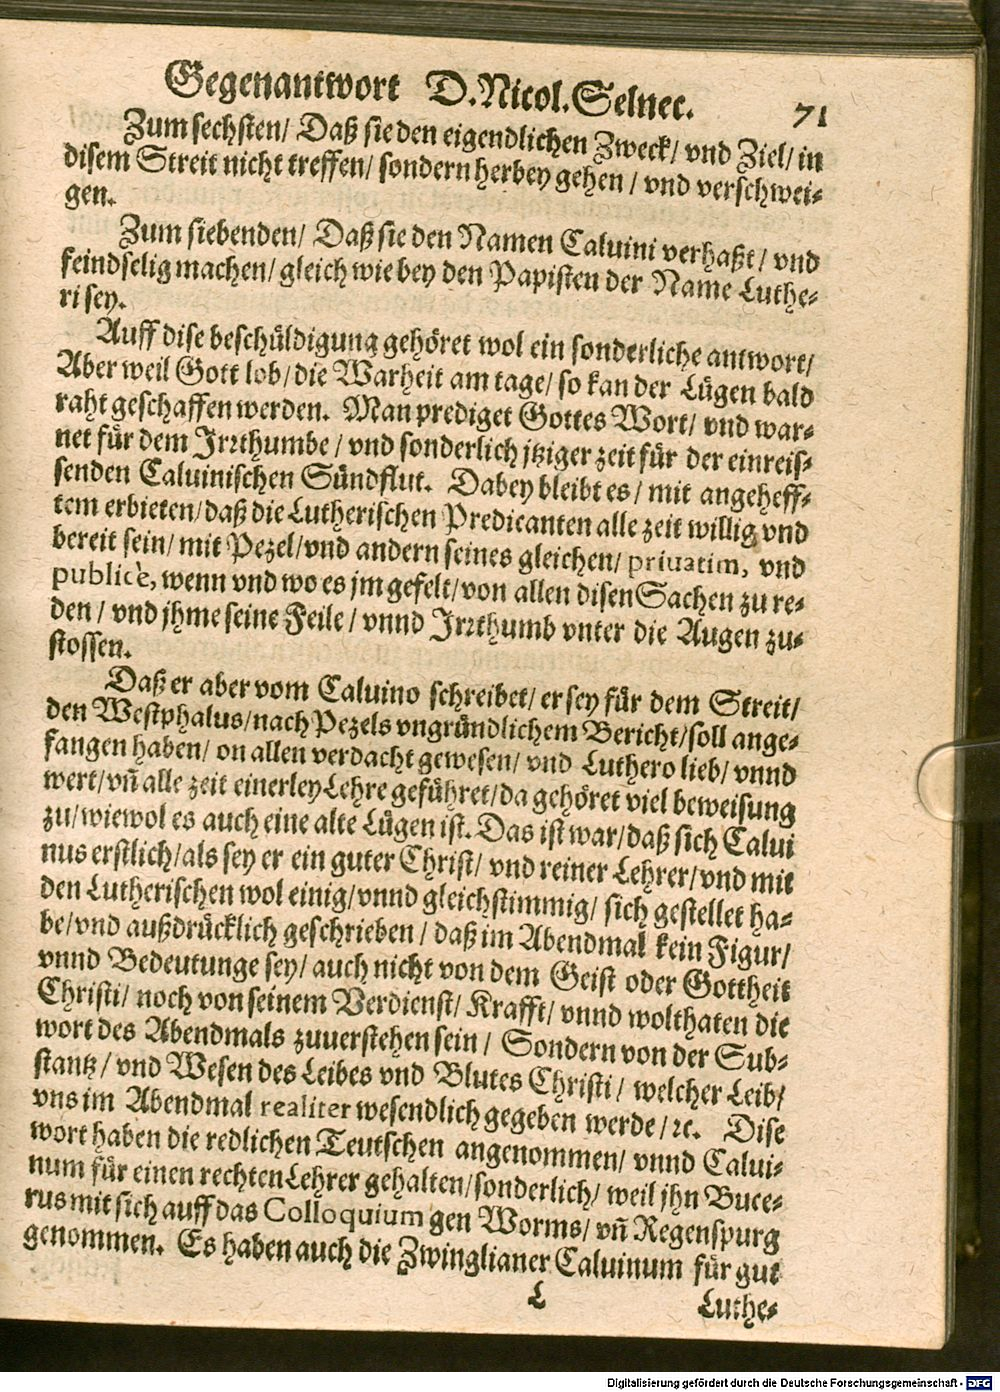 Gegenantwort D. Nicol. Selnec. 71
Zum sechsten/ Daß sie den eigendlichen Zweck/ vnd Ziel/ in
disem Streit nicht treffen/ sondern herbey gehen / vnd verschwei-
gen.
Zum siebenden/ Daß sie den Namen Caluini verhaßt/ vnd
feindselig machen/ gleich wie bey den Papisten der Name Luthe-
ri sey.
Auff dise beschüldigung gehöret wol ein sonderliche antwort/
Aber weil Gott lob/ die Warheit am tage/ so kan der Lügen bald
raht geschaffen werden. Man prediget Gottes Wort/ vnd war-
net für dem Irrthumbe / vnd sonderlich jtziger zeit für der einreis-
senden Caluinischen Sündflut. Dabey bleibt es / mit angeheff-
tem erbieten/ daß die Lutherischen Predicanten alle zeit willig vnd
bereit sein/ mit Pezel/ vnd andern seines gleichen/ priuatim, vnd
publicè, wenn vnd wo es jm gefelt/ von allen disen Sachen zu re-
den / vnd jhme seine Feile / vnnd Irrthumb vnter die Augen zu-
stossen.
Daß er aber vom Caluino schreibet/ er sey für dem Streit/
den Westphalus/ nach Pezels vngründlichem Bericht/ soll ange-
fangen haben/ on allen verdacht gewesen/ vnd Luthero lieb/ vnnd
wert/ vñ alle zeit einerley Lehre geführet/ da gehöret viel beweisung
zu/ wiewol es auch eine alte Lügen ist. Das ist war/ daß sich Calui
nus erstlich/ als sey er ein guter Christ/ vnd reiner Lehrer/ vnd mit
den Lutherischen wol einig/ vnnd gleichstimmig/ sich gestellet ha-
be/ vnd außdrücklich geschrieben / daß im Abendmal kein Figur/
vnnd Bedeutunge sey/ auch nicht von dem Geist oder Gottheit
Christi/ noch von seinem Verdienst/ Krafft/ vnnd wolthaten die
wort des Abendmals zuuerstehen sein / Sondern von der Sub-
stantz / vnd Wesen des Leibes vnd Blutes Christi / welcher Leib/
vns im Abendmal realiter wesendlich gegeben werde / ꝛc. Dise
wort haben die redlichen Teutschen angenommen/ vnnd Calui-
num für einen rechten Lehrer gehalten/ sonderlich/ weil jhn Buce-
rus mit sich auff das Colloquium gen Worms/ vñ Regenspurg
genommen. Es haben auch die Zwinglianer Caluinum für gut
L Luthe-
Digitalisierung gefördert durch die Deutsche Forschungsgemeinschaft - DFG